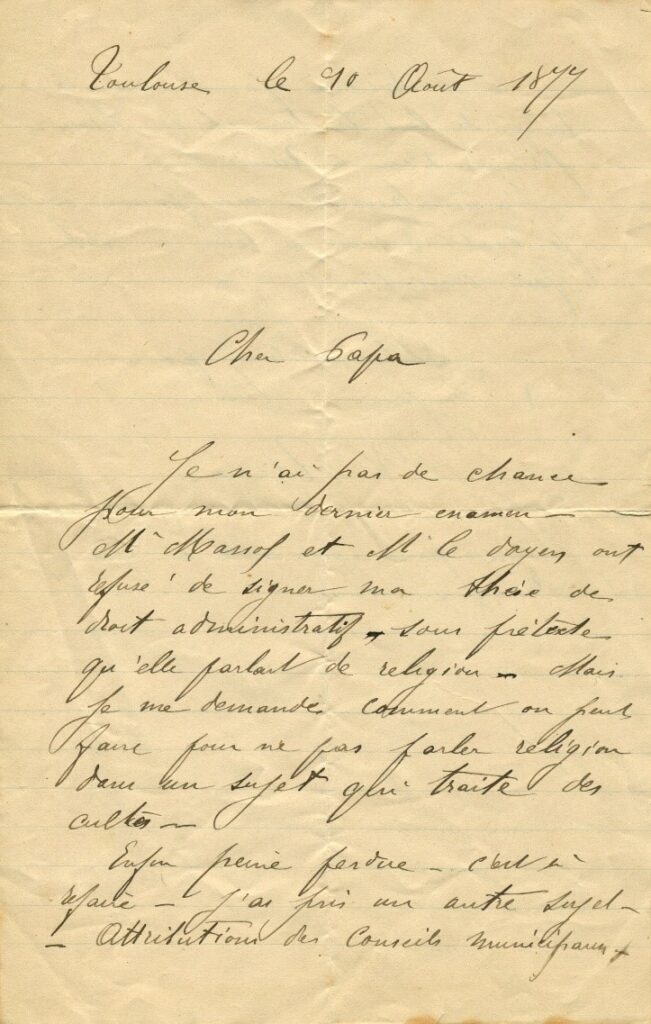 Toulouse le 10 Août 1877
Cher Papa
Je n'ai pas de chance
pour mon dernier examen —
Mr Massol et Mr le doyen ont
refusé de signer ma thèse de
droit administratif — sous prétexte
qu'elle parlait de religion — Mais
je me demande comment on peut
faire pour ne pas parler religion
dans un sujet qui traite des
cultes —
Enfin peine perdue — c'est à
refaire — j'ai pris un autre sujet —
— Attributions des Conseils municipaux